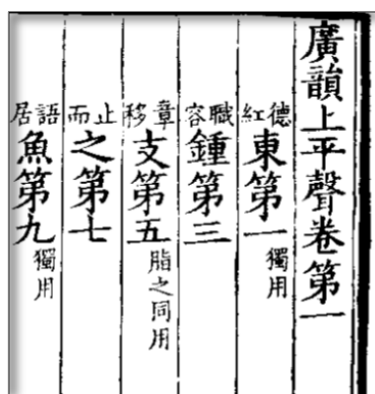 廣韻上平聲卷第一
德紅東第一獨用
職容鍾第三
章移支第五脂之同用
止而之第七
語居魚第九獨用